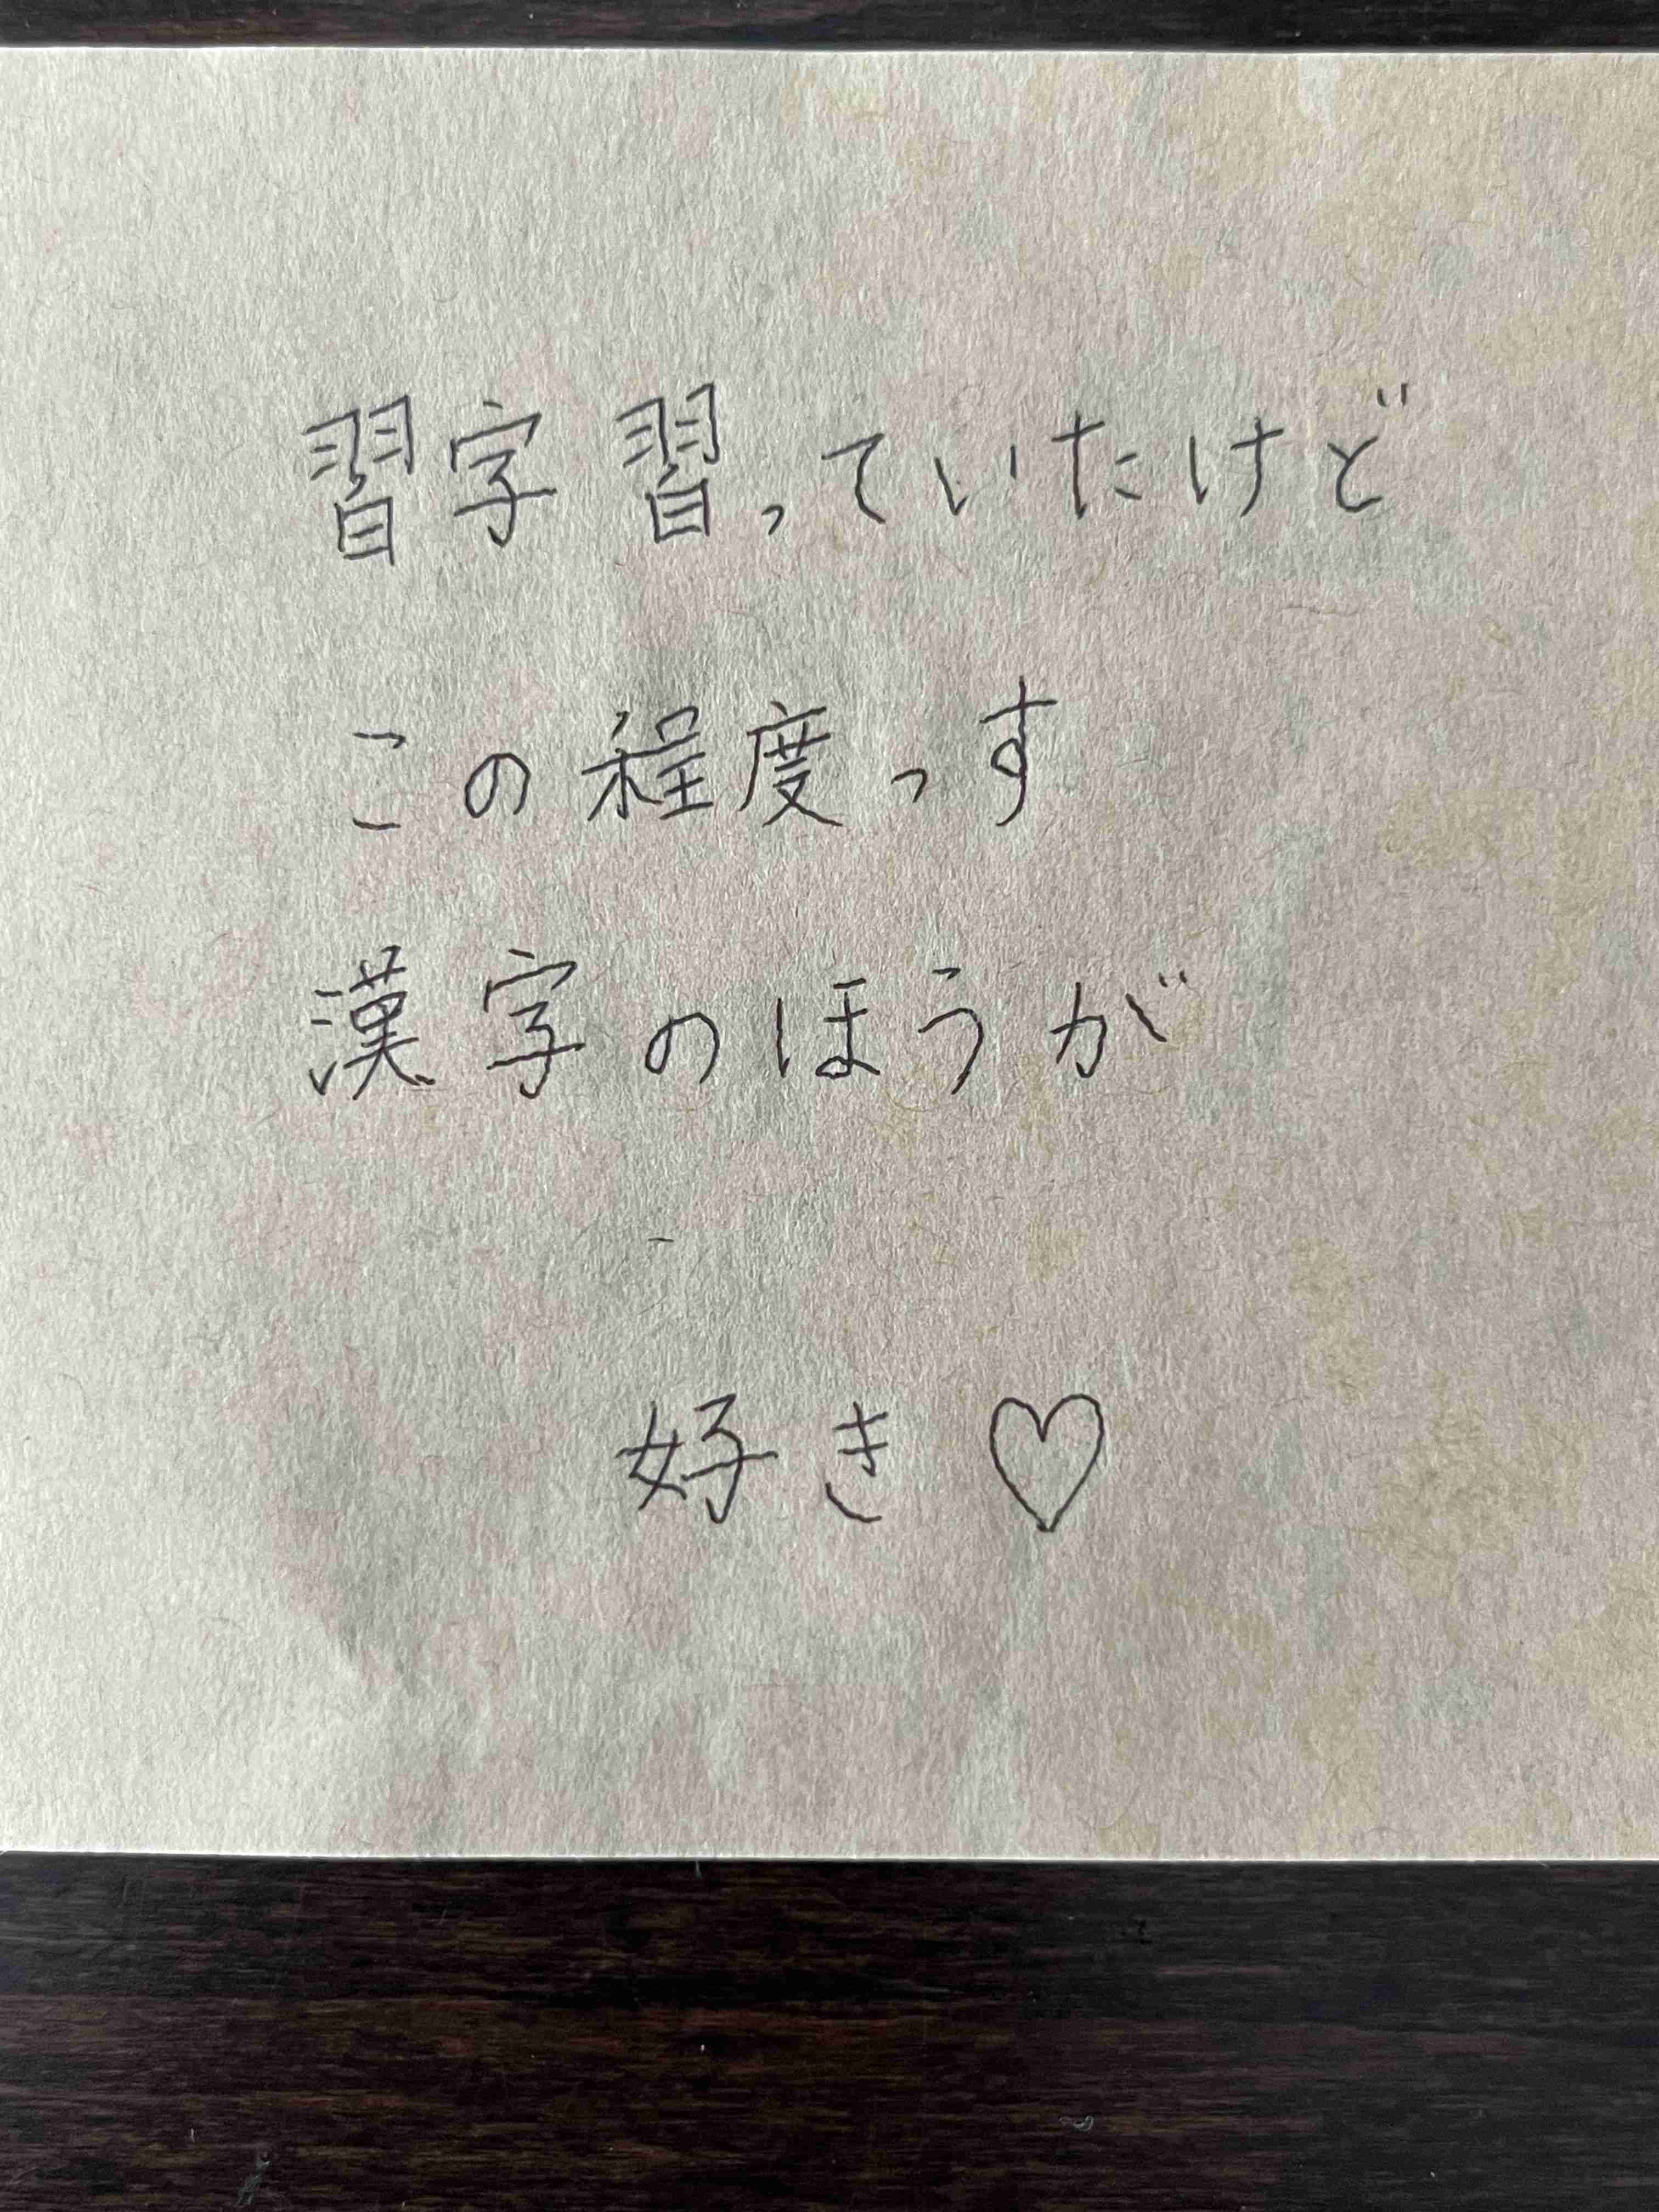 習字習っていたけど
この程度っす
漢字のほうが
好き♡